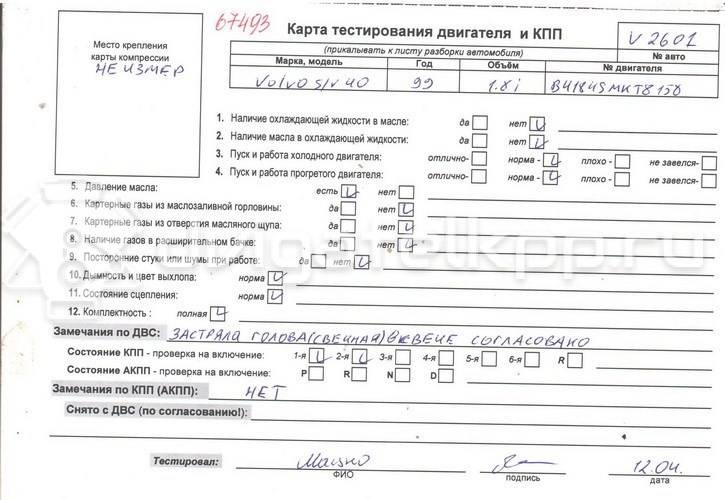 67493
Карта тестирования двигателя и КПП
(прикалывать к листу разборки автомобиля)
V 2601
№ авто
Место крепления
карты компрессии
НЕ ИЗМЕР
Марка, модель Год Объём № двигателя
Volvo s/v 40 99 1.8i B4184SMKT8158
1. Наличие охлаждающей жидкости в масле: да нет
2. Наличие масла в охлаждающей жидкости: да нет
3. Пуск и работа холодного двигателя: отлично- норма - плохо - не завелся-
4. Пуск и работа прогретого двигателя: отлично- норма - плохо - не завелся-
5. Давление масла: есть нет
6. Картерные газы из маслозаливной горловины: да нет
7. Картерные газы из отверстия масляного щупа: да нет
8. Наличие газов в расширительном бачке: да нет
9. Посторонние стуки или шумы при работе: да нет
10. Дымность и цвет выхлопа: норма
11. Состояние сцепления: норма
12. Комплектность : полная
Замечания по ДВС: ЗАСТРЯЛА ГОЛОВА(СВЕЧНАЯ)В СВЕЧЕ СОГЛАСОВАНО
Состояние КПП - проверка на включение: 1-я 2-я 3-я 4-я 5-я 6-я R
Состояние АКПП - проверка на включение: P R N D
Замечания по КПП (АКПП): НЕТ
Снято с ДВС (по согласованию!):
Тестировал: 12.04.
ФИО подпись дата
dvigatelkpp.ru